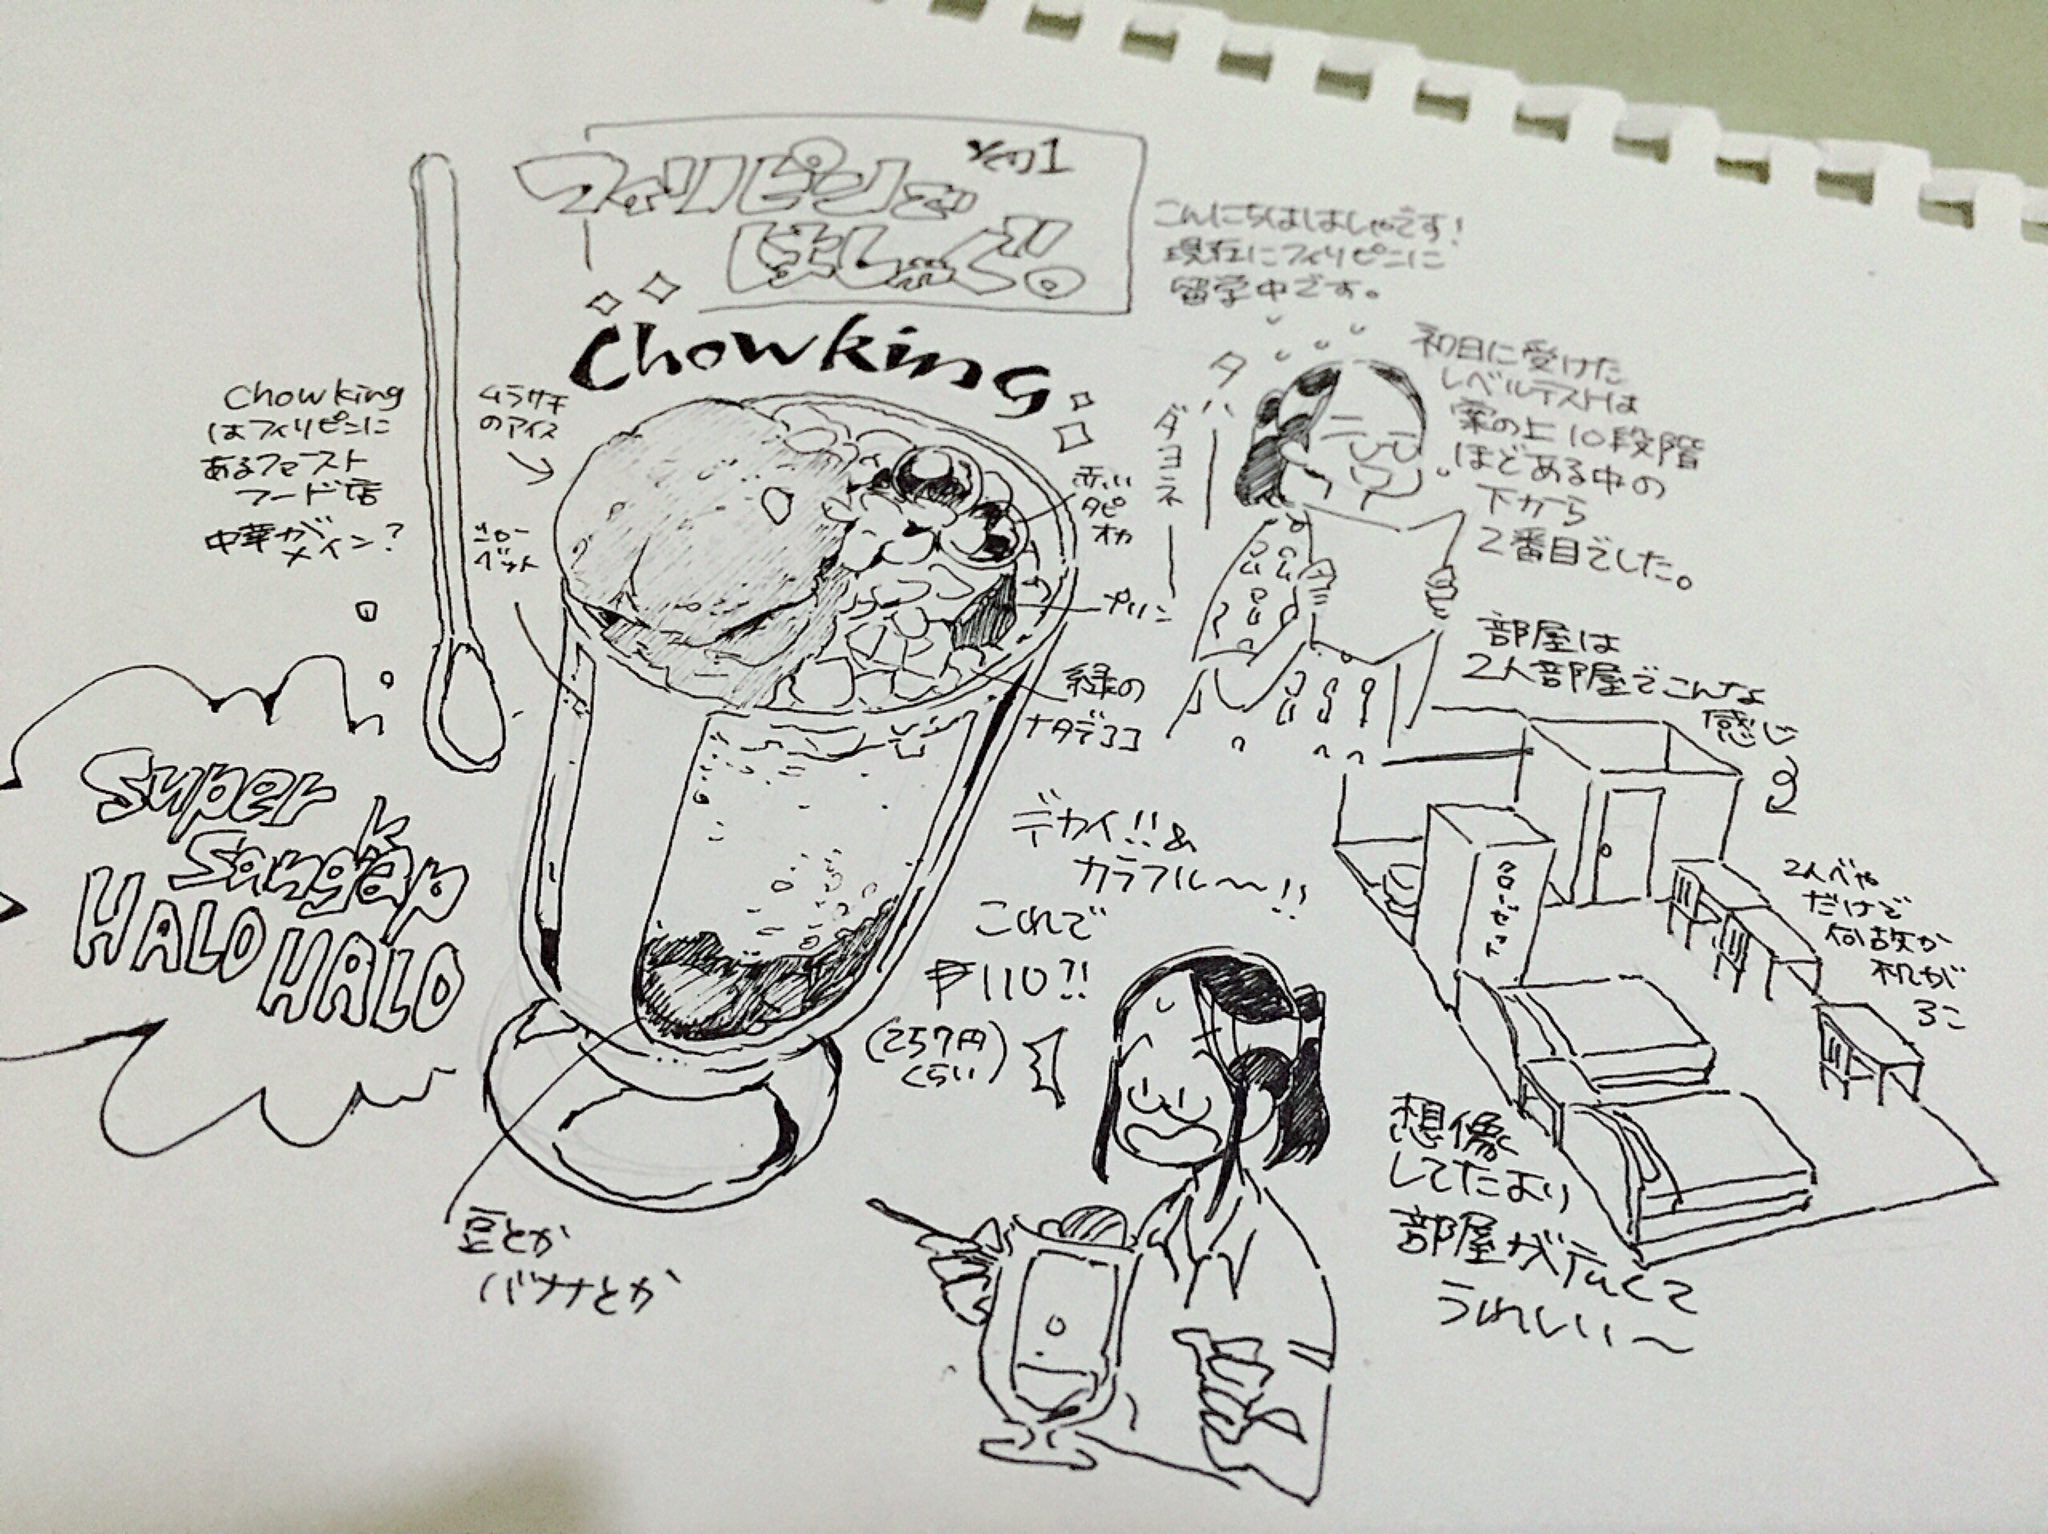 フィリピンで
はしゃぐ。
その1
こんにちははしゃです!
現在にフィリピンに
留学中です。
Chowking
Chowking
はフィリピンに
あるファースト
フード店
中華がメイン?
ムラサキ
のアイス
赤い
タピ
オカ
プリン
緑の
ナタデココ
豆とか
バナナとか
Super
Sangkap
HALO HALO
ダヨネ
初日に受けた
レベルテストは
案の上10段階
ほどある中の
下から
2番目でした。
部屋は
2人部屋でこんな
感じ
クローゼット
2人べや
だけど
何故か
机が
3こ
デカイ!!&
カラフル〜!!
これで
₱110?!
(257円
くらい)
想像
してたより
部屋が広くて
うれしい〜